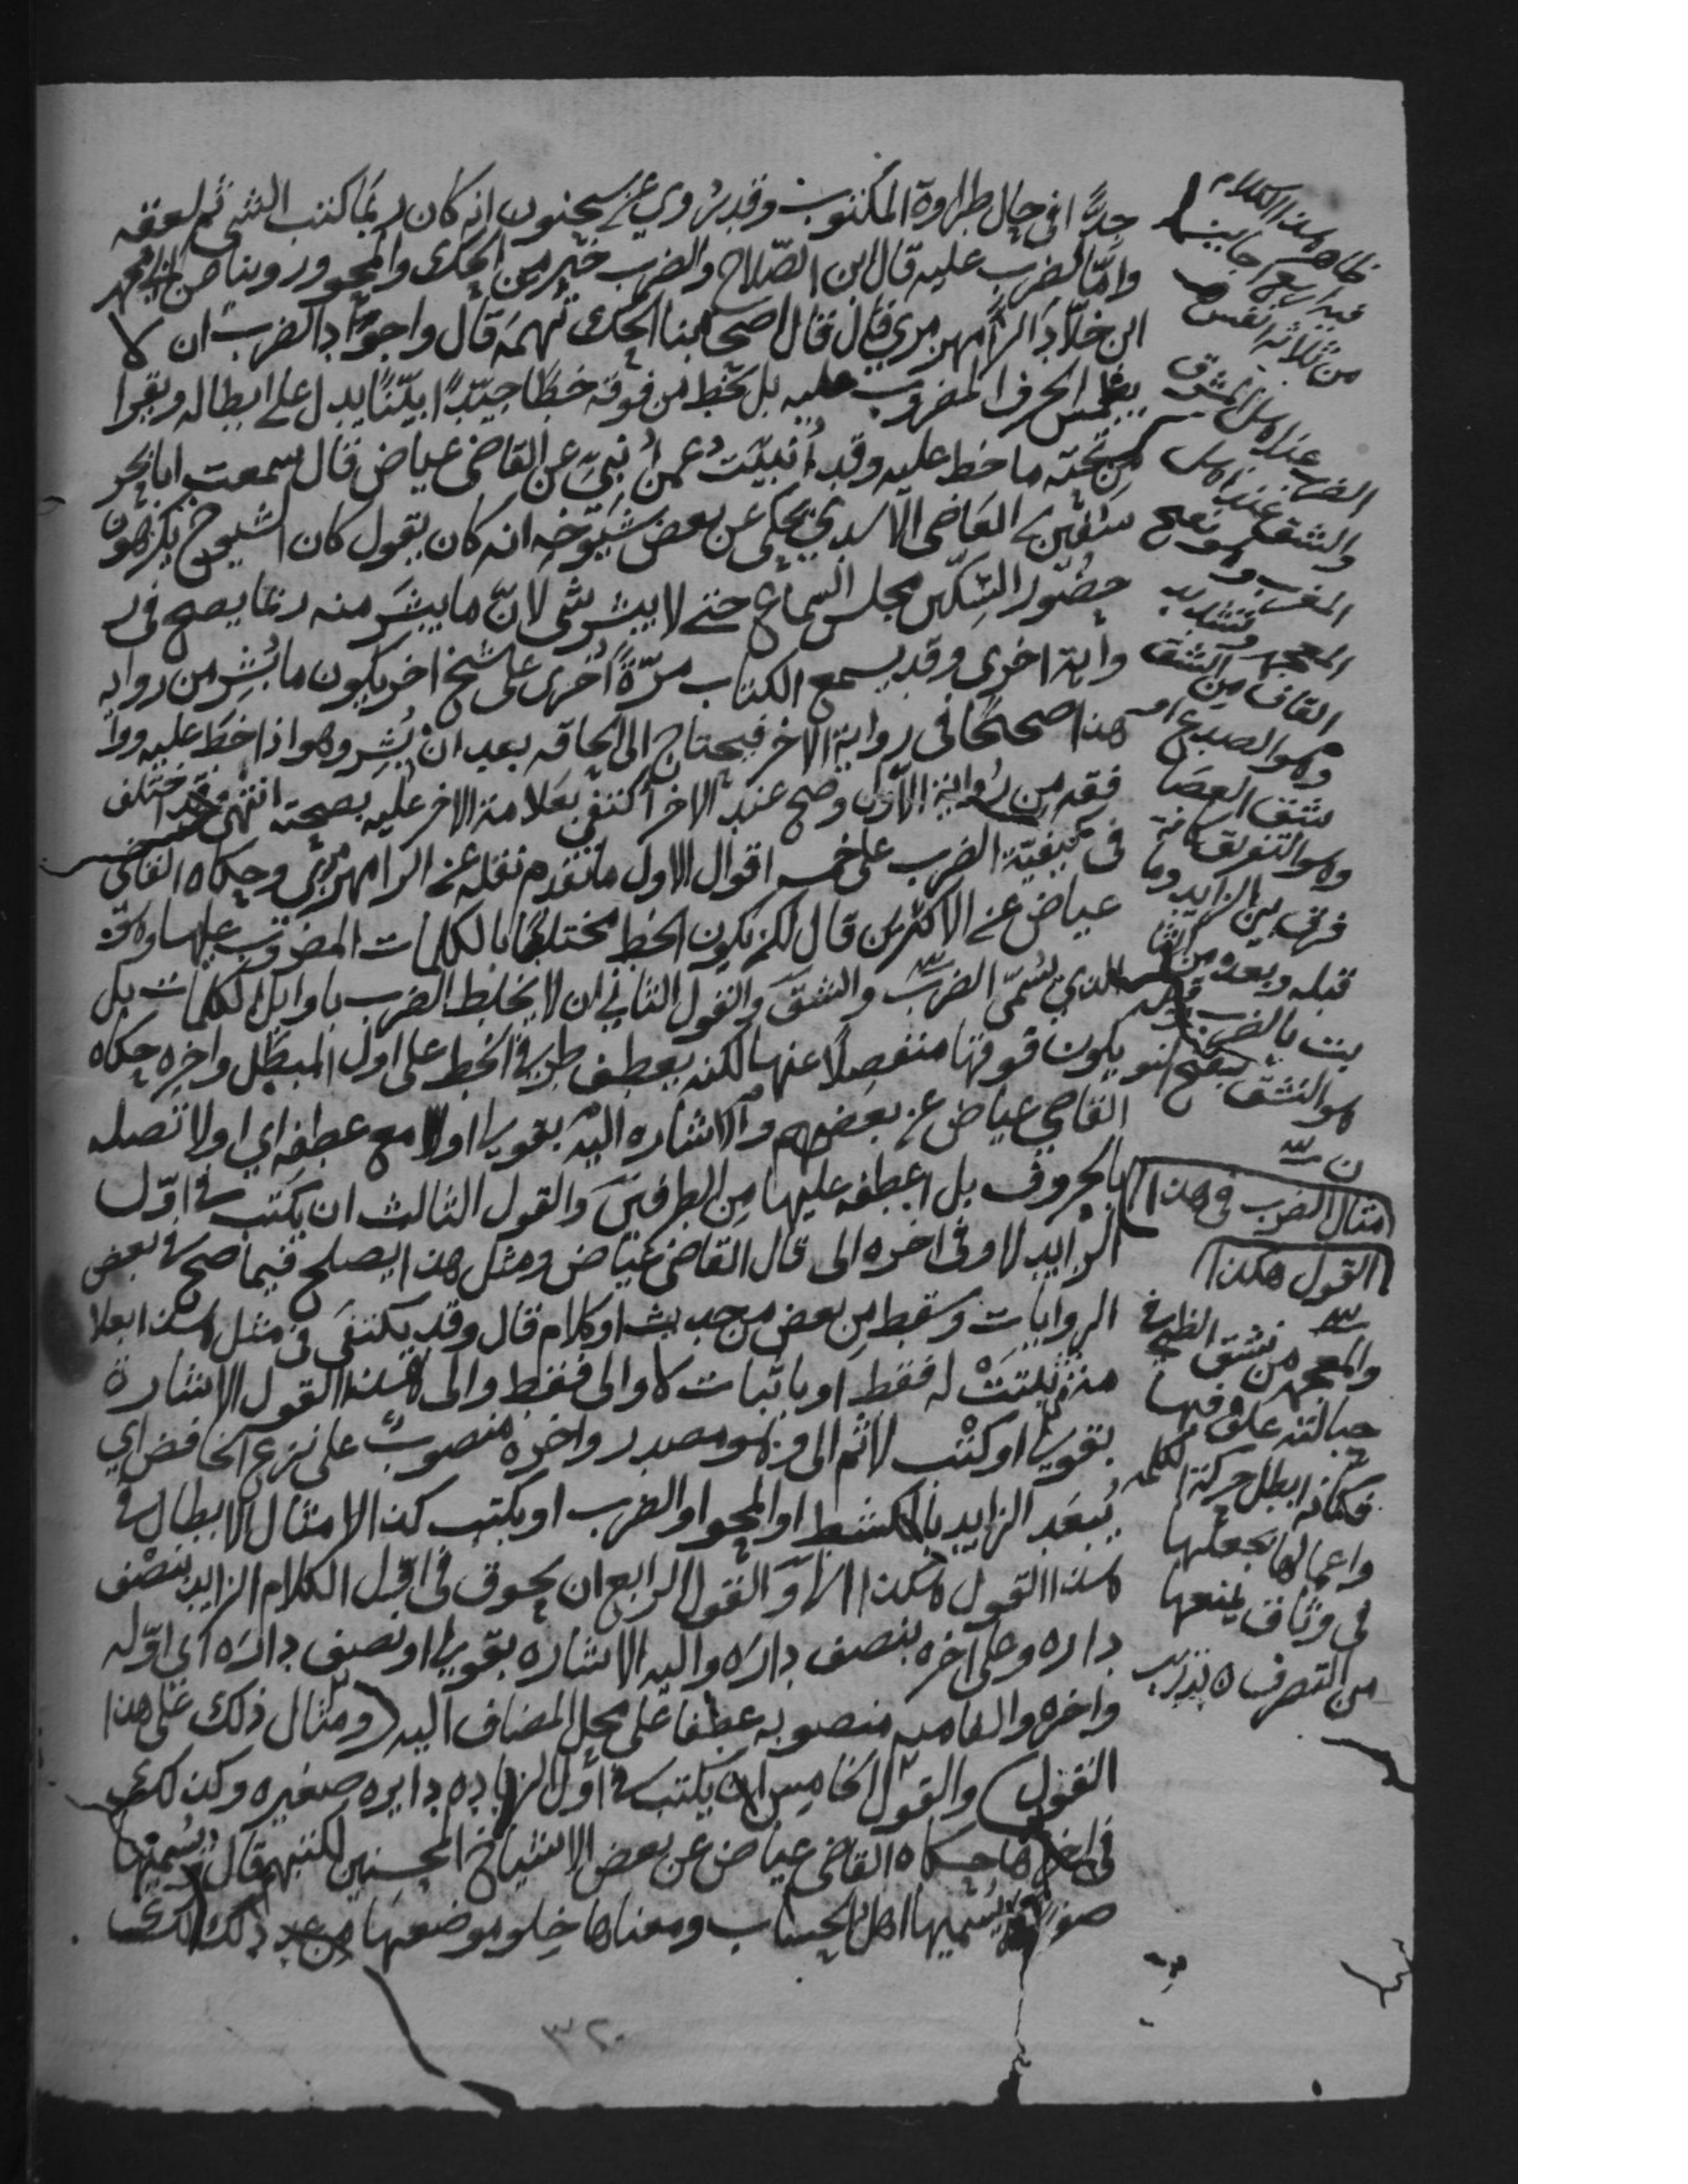 جدًّا او في حال طراوة المكتوب وقد روي عن سحنون انه كان ربما كتب الشي ثم لعقه
وامّا الضرب عليه قال ابن الصّلاح والضرب خير من الحك والمحو وروينا عن ابي محمد
ابن خلّاد الرّامهرمزي قال قال اصحابنا الحك تهمة قال واجود الضرب ان لا
يطمس الحرف المضروب عليه بل يخط من فوقه خطًا جيّدًا بيّنًا يدل على ابطاله ويقرا
من تحته ما خط عليه وقد أُنبيت عمن أُنبي عن القاضي عياض قال سمعت ابا بحر
سفين بن القاضي الاسدي يحكي عن بعض شيوخه انه كان يقول كان الشيوخ يكرهون
حضور السّكّين مجلس السماع حتى لا يبشر شي لانّ ما يبشر منه ربما يصح في ر
واية اخرى وقد يسمع الكتاب مرّة أخرى على شيخ اخر يكون ما بُشِر من رواية
هذا صحيحًا في رواية الاخر فيحتاج الى الحاقه بعد ان بُشِر وهو اذا خط عليه ووا
فقه من رواية الاوّل وصح عند الاخر اكتفى بعلامة الاخر عليه بصحته انتهى وقد اختلف
في كيفيّة الضرب على خمسه اقوال الاول ما تقدم نقله عن الرامهرمزي وحكاه القاضي
عياض عن الاكثرين قال لكن يكون الخط مختلطًا بالكلمات المضروب عليها وهو
الذي يُسمّى الضرب والشق والقول الثاني ان لا يخلط الضرب باوايل الكلمات بل
يكون فوقها منفصلًا عنها لكنه يعطف طرفي الخط على اول المبطل واخره حكاه
القاضي عياض عن بعضهم والاشاره اليه بقوله اولا مع عطفه اي اولا تصله
بالحروف بل اعطفه عليها من الطرفين والقول الثالث ان يكتب في اوّل
الزايد لا وفي اخره الى قال القاضي عياض ومثل هذا يصلح فيما صح في بعض
الروايات وسقط من بعض من حديث او كلام قال وقد يكتفى في مثل هذا بعلا
مة من ثبتت له فقط او باثبات لا والى فقط والى هذا القول الاشارة
بقوله او كتب لا ثم الى وهو مصدر واخره منصوب على نزع الخافض اي
يُبعَد الزايد بالكشط او المحو او الضرب او يكتب كذا مثال الابطال في
هذا القول هكذا والقول الرابع ان يحوق في اوّل الكلام الزايد بنصف
داره وعلى اخره بنصف دارَه واليه الاشاره بقوله او نصف دارَه اي اوّله
واخره والفا منصوبه عطفا على محل المضاف اليه ومثال ذلك على هذا
القول والقول الخامس ان يكتب في اول الزياده دايره صغيره وكذلك
في اخرها حكاه القاضي عياض عن بعض الاشياخ المحسنين لكتبهم قال ويسميها
صفرا يسميها اهل الحساب ومعناها خلو موضعها من عدد ذلك كذلك
ظاهر هذا الكلام
من ثلاثة انفس
الضرب عند اهل المشرق
والشق عند اهل
المغرب وهو بفتح
المعجمه وتشديد
القاف من الشق
وهو الصدع او
شق العصا
وهو التفريق كانه
فرق بين الزايد وما
قبله وبعده من الثا
بت بالضرب
هو النشق بفتح النو
ن
مثال الضرب في هذا
القول هكذا
والمعجمه من نشق الظبي في
حبالته علق فيها
فكانه ابطل حركة الكلمه
واعمالها بجعلها
في وثاق يمنعها
من التصرف تدريب
٣٢٠